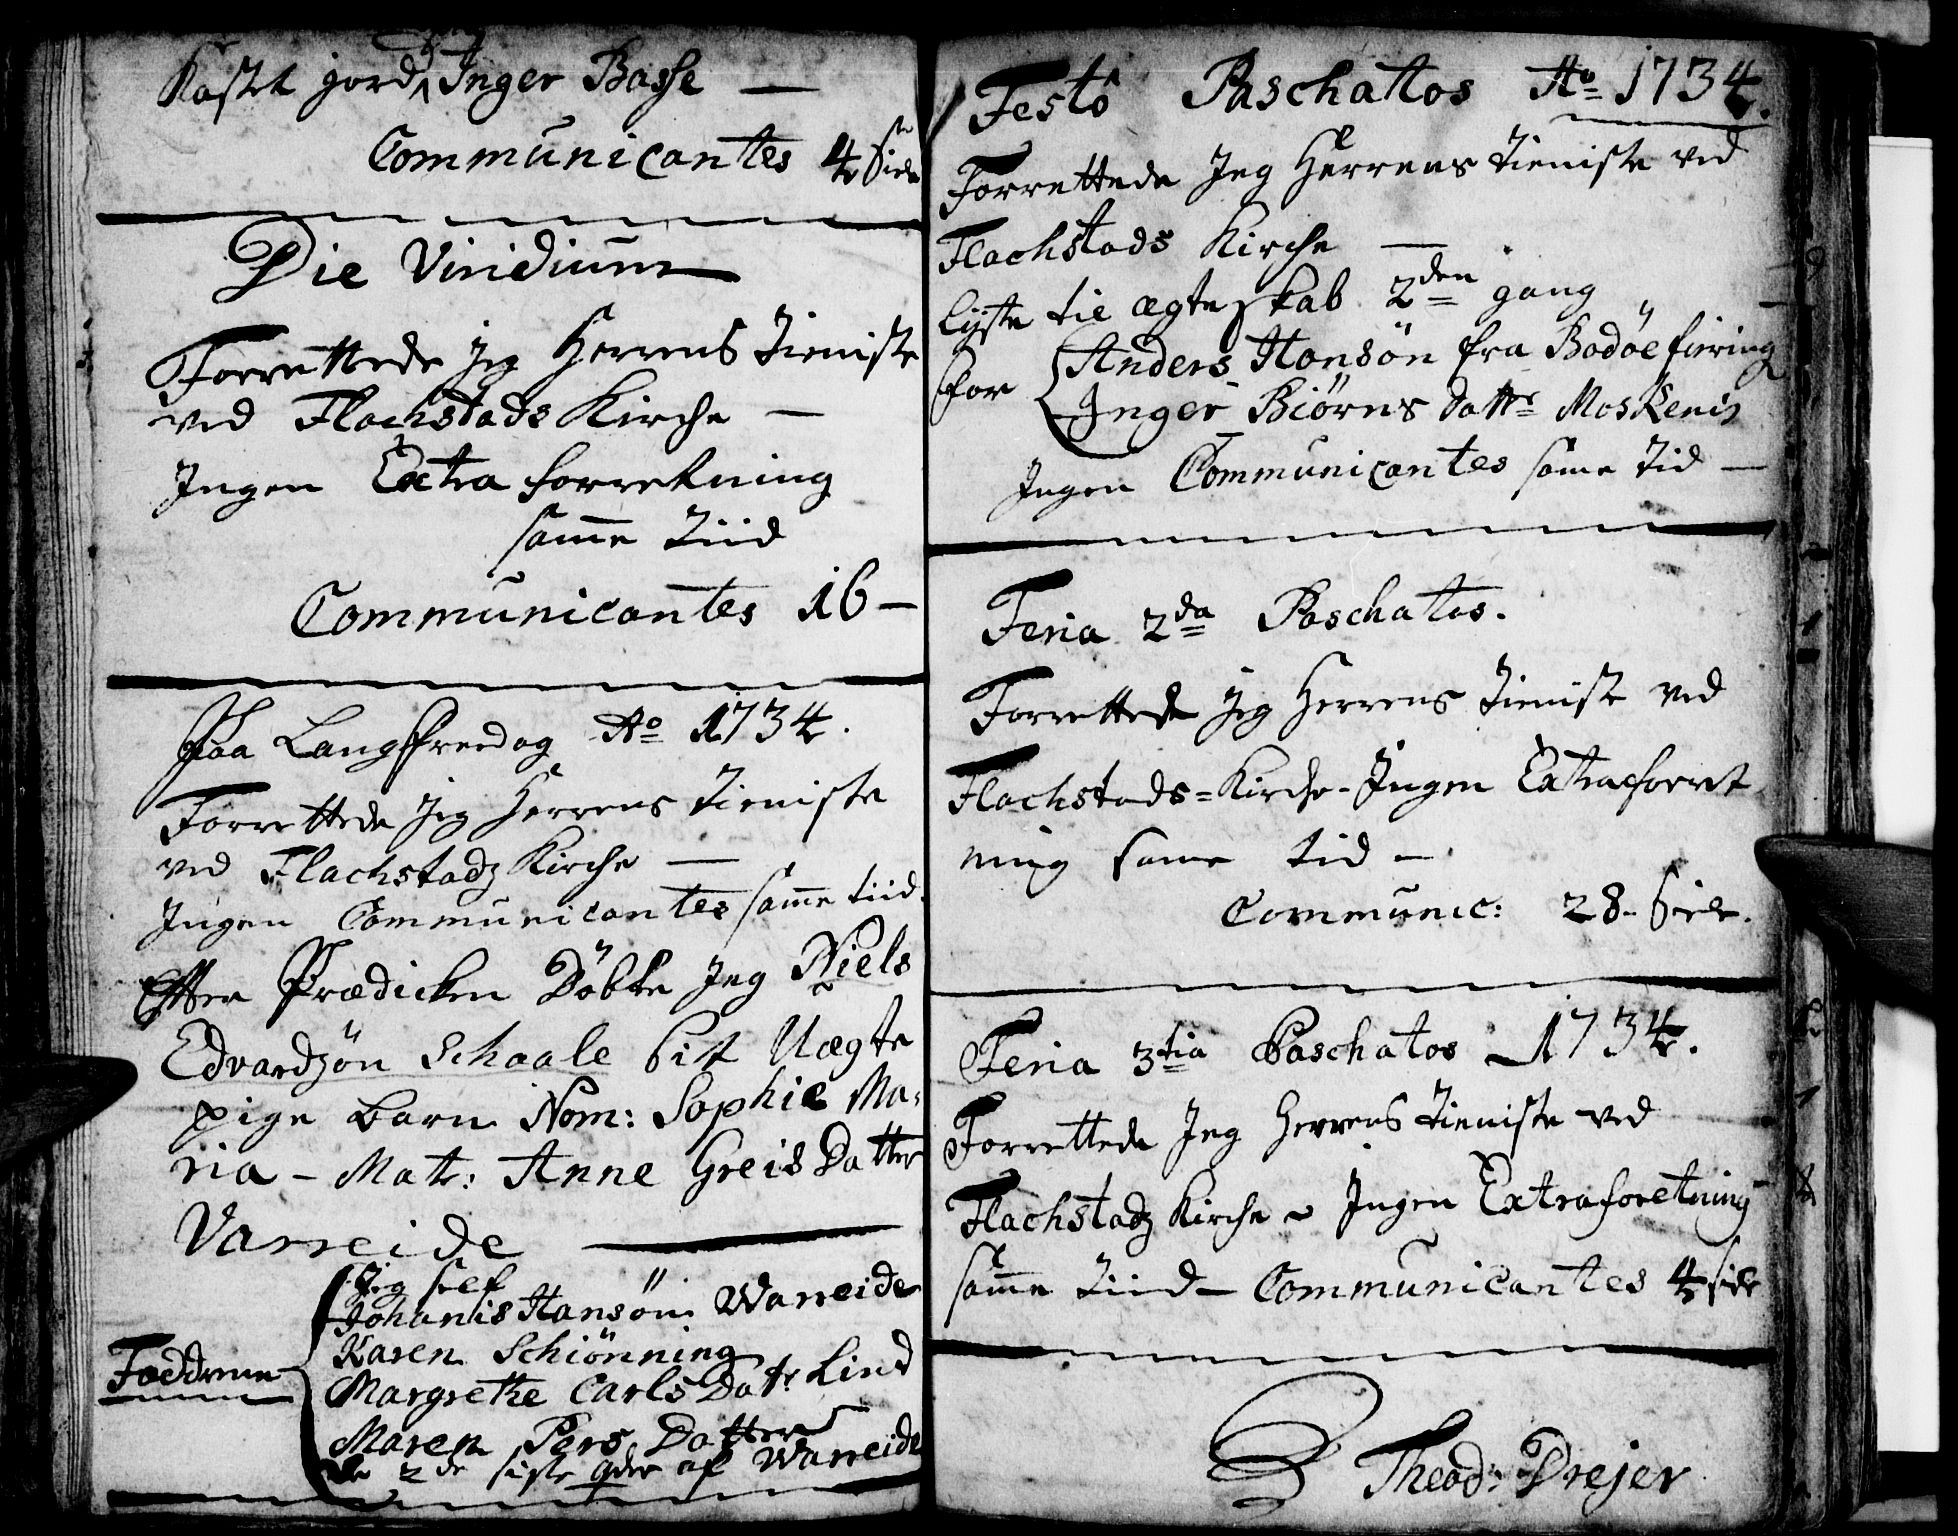 Kastet jord Inger Basse —
Communicantes 4 Siele
Die Viridium
Forrettede Jeg Herrens Tieniste
ved Flachstads Kirche —
Ingen Extra forretning
samme Tiid
Communicantes 16 —
Paa Langfreedag Ao 1734.
Forrettede Jeg Herrens Tieniste
ved Flachstadz Kirche —
Ingen Communicantes samme tiid.
Efter Prædicken Döbte Jeg Niels
Edvardsön Schaale sit Uægte
pige barn Nom: Sophie Ma-
ria - Matr: Anne Greis Datter
Varreide
Jeg self
Johanis Hansön Warreide
Karen Schiönning
Faddrene
Margrethe Carls Datr Lind
Maren Pers Datter
de 2de siste af Warreide
Festo Paschatos Ao 1734.
Forrettede Jeg Herrens Tieniste ved
Flachstads Kirche —
Lyste til ægteskab 2den gang
for Anders Hansön fra Bodöe fiering
Inger Biörns dattr Moskenis
Ingen Communicantes same Tid —
Feria 2da Paschatos.
Forrettede Jeg Herrens Tienist ved
Flachstads = Kirche - Ingen Extraforret
ning same tid —
Communic: 28. Siele.
Feria 3tia Paschatos 1734.
Forrettede Jeg Herrens Tieniste ved
Flachstadz Kirche - Ingen Extraforetning
samme Tiid - Communicantes 4 siele
Theod: Drejer